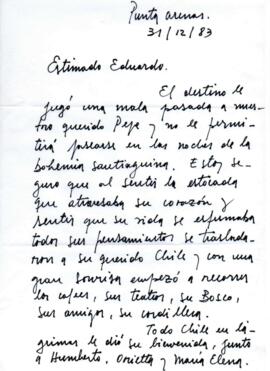 Punta Arenas.
31/12/83
Estimado Eduardo.
El destino le
jugó una mala pasada a nues-
tro querido Pepe y no le permi-
tirá pasearse en las noches de la
bohemia santiaguina. Estoy se-
guro que al sentir la estocada
que atravesaba su corazón y
sentir que su vida se esfumaba
todos sus pensamientos se traslada-
ron a su querido Chile y con una
gran sonrisa empezó a recorrer
los cafees, sus teatros, su Bosco,
sus amigos, su cordillera.
Todo Chile en lá-
grimas le dió su bienvenida, junto
a Humberto, Orietta y María Elena.